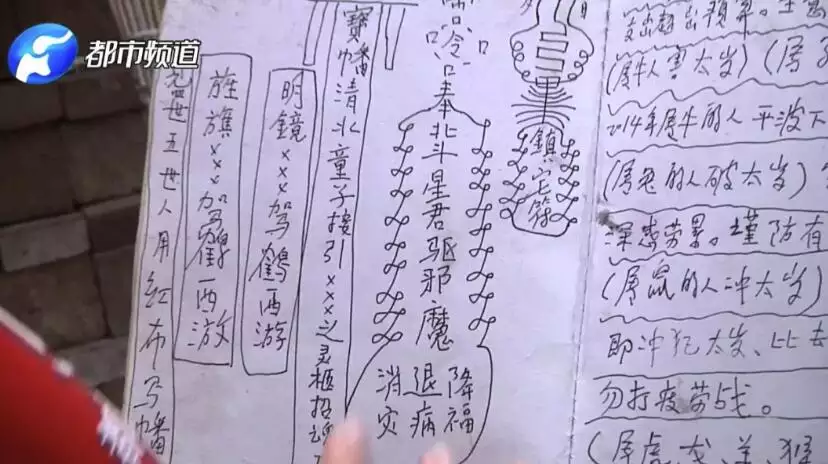 都市频道
世五世人用红布写幡
旌旗×××驾鹤西游
明鏡×××驾鶴西游
寶幡清北童子接引×××之灵柩招魂
奉北斗星君驱邪魔
降福
退病
消灾
鎮宅符
支出超出预算。
(属牛人害太岁)(属
2014年属牛的人平波下
(属兔的人破太岁)
深感劳累。谨防有
(属鼠的人冲太岁)
即冲犯太岁、比去
勿打疲劳战。
(属虎、龙、羊、猴